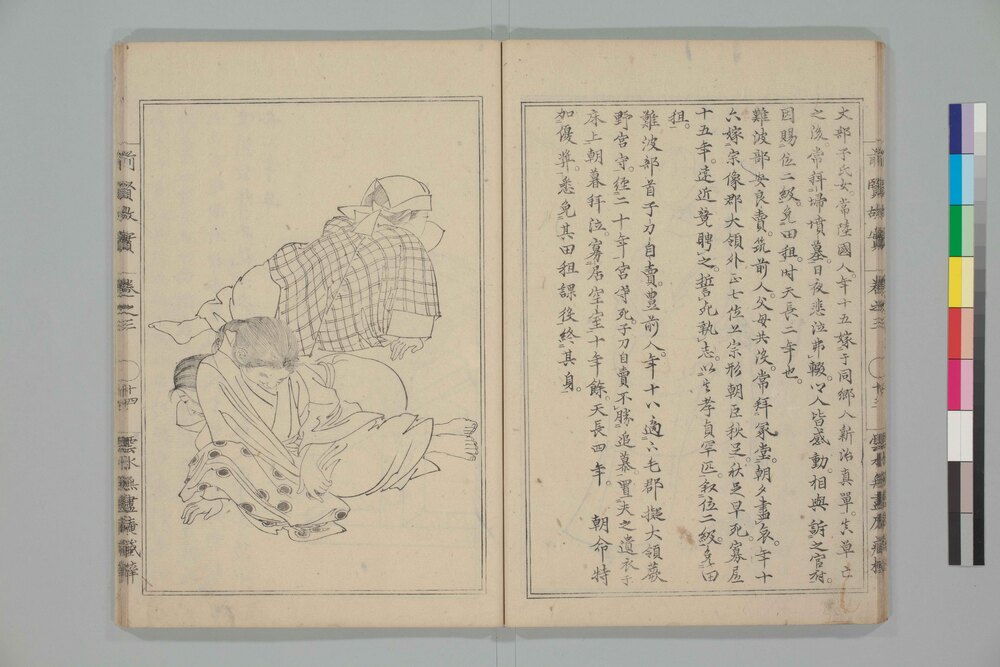 丈部子氏女常陸國人。年十五嫁于同鄉人新治真單。真單亡
之後。常拜掃墳墓。日夜悲泣弗輟。以人皆感動。相與訴之官府。
因賜位二級免田租。時天長二年也。
難波部安良賣。筑前人。父母共沒。常拜冢堂。朝夕盡哀。年十
六嫁宗像郡大領外正七位上宗形朝臣秋足。秋足早死。寡居
十五年。遠近競聘之。誓死執志。以其孝貞罕匹。叙位二級。免田
租。
難波部首子刀自賣。豊前人。年十八適下毛郡擬大領蕨
野宮守。經二十年宮守死。子刀自賣不勝追慕。置夫之遺衣于
床上。朝暮拜泣。寡居空室十年餘。天長四年。朝命特
加優奬。悉免其田租課役終其身。
前賢故實
卷之三
廿四
雲水無盡庵藏梓